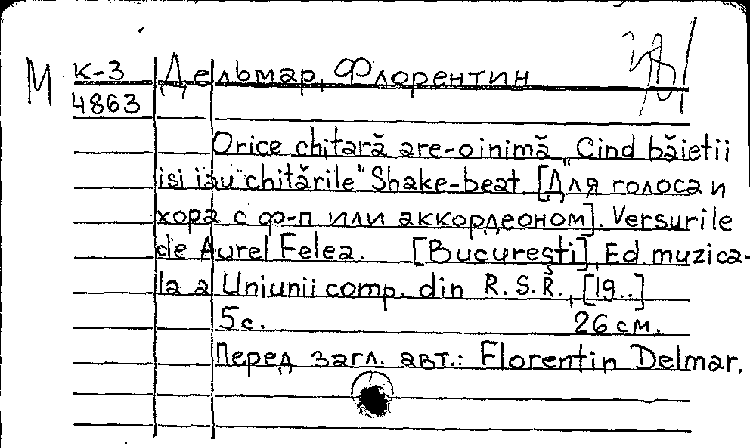 М К-3 Дельмар, Флорентин
4863
Orice chitară are-o inimă „Cind băietii
isi iau chitările" Shake-beat [Для голоса и
хора с ф-п или аккордеоном]. Versurile
de Aurel Felea. [Bucureşti] Ed muzica-
la a Uniunii comp. din R.S.R., [19..]
5с. 26 см.
Перед загл. авт.: Florentin Delmar.